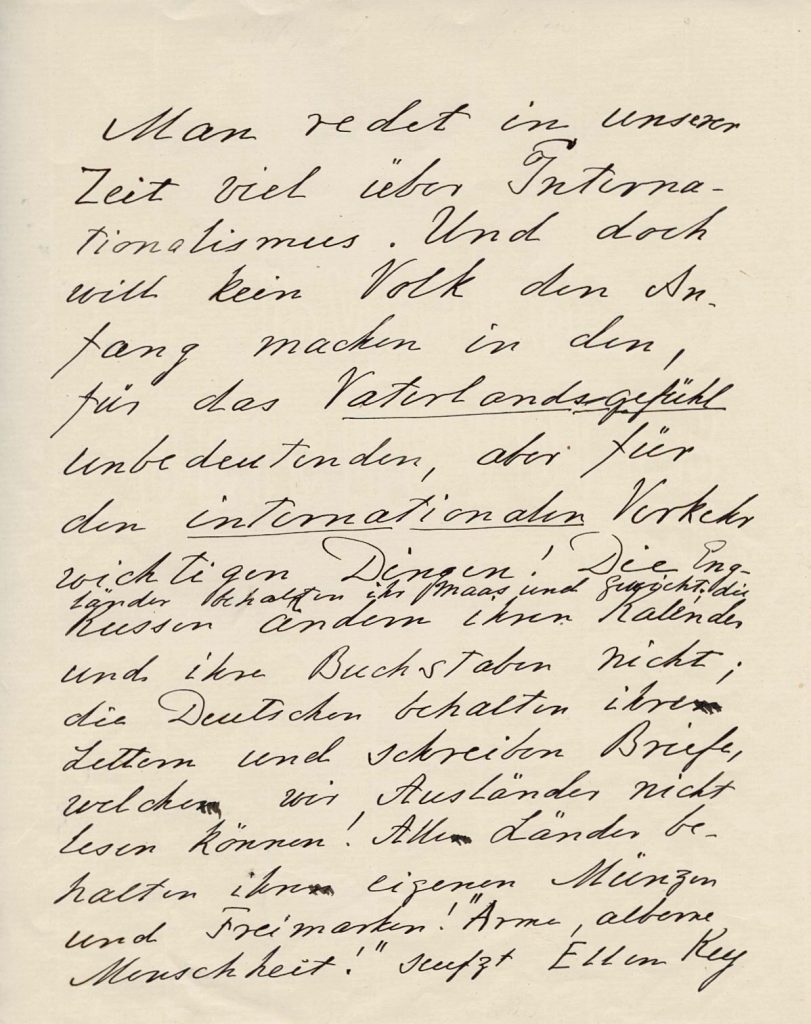 Man redet in unserer
Zeit viel über Interna-
tionalismus. Und doch
will kein Volk den An-
fang machen in den,
für das Vaterlandsgefühl
unbedeutenden, aber für
den internationalen Verkehr
wichtigen Dingen! Die Eng-
länder behalten ihr Maas und Gewicht, die
Russen ändern ihren Kalender
und ihre Buchstaben nicht;
die Deutschen behalten ihre
Lettern und schreiben Briefe,
welche wir Ausländer nicht
lesen können! Alle Länder be-
halten ihre eigenen Münzen
und Freimarken! "Arme, alberne
Menschheit!" seufzt Ellen Key